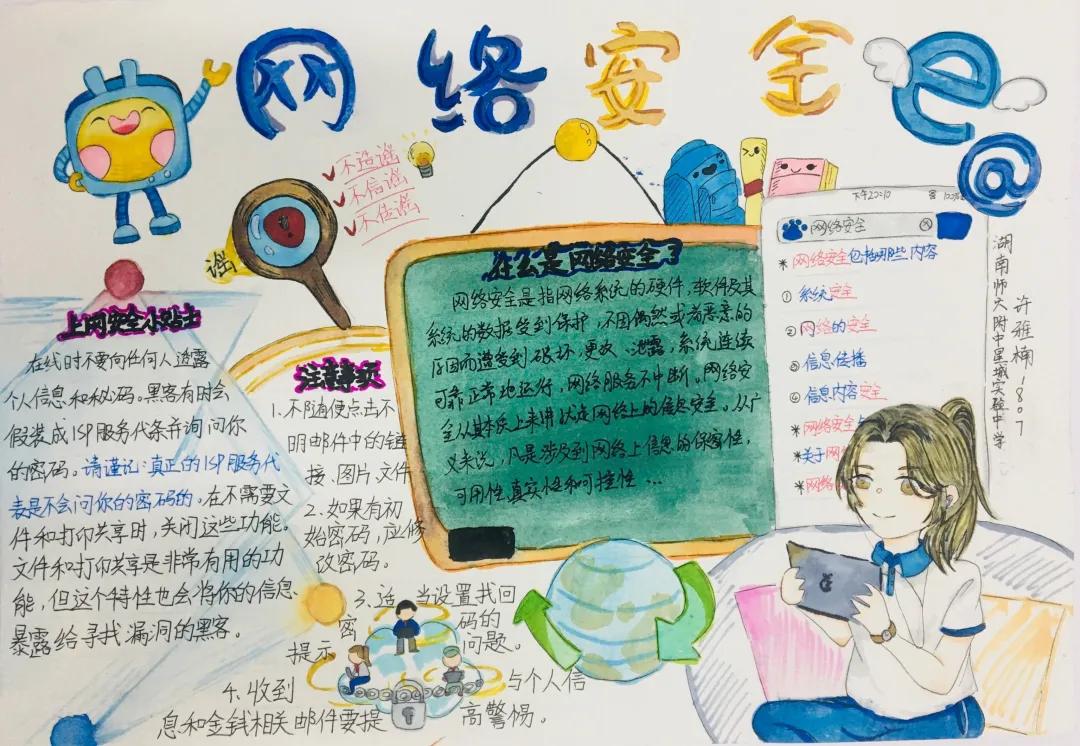 网络安全 e @
不造谣
不信谣
不传谣
谣
上网安全小贴士
在线时不要向任何人透露
个人信息和秘码。黑客有时会
假装成ISP服务代表并询问你
的密码。请谨记:真正的ISP服务代
表是不会问你的密码的。在不需要文
件和打印共享时,关闭这些功能。
文件和打印共享是非常有用的功
能,但这个特性也会将你的信息
暴露给寻找漏洞的黑客。
注意事项
1.不随便点击不
明邮件中的链
接、图片、文件
2.如果有初
始密码,应修
改密码。
3.适当设置找回
密码的
提示问题。
4.收到与个人信
息和金钱相关邮件要提高警惕。
什么是网络安全?
网络安全是指网络系统的硬件,软件及其
系统的数据受到保护,不因偶然或者恶意的
原因而遭受到破坏、更改、泄露,系统连续
可靠正常地运行,网络服务不中断。网络安
全从其本质上来讲就是网络上的信息安全。从广
义来说,凡是涉及到网络上信息的保密性,
可用性,真实性和可控性...
下午20:10
网络安全
*网络安全包括哪些内容
①系统安全
②网络的安全
③信息传播
④信息内容安全
*网络安全
*关于网
*网络
湖南师大附中星城实验中学
许雅楠-1807